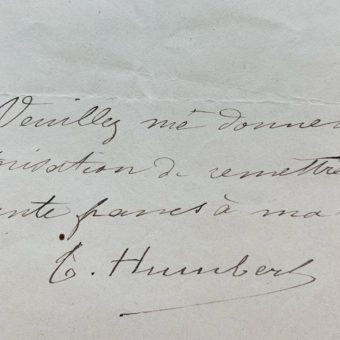 Veuillez me donner
orisation de remettre
ente francs à ma
T. Humbert